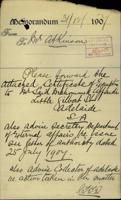 Memorandum 31/7/1907
From
To Mr Atkinson
Please forward the
attached Certificate of Exemption
to Mr Syed Mahomed
Little Gilbert St
Adelaide
S.A
also advise Secretary Department
of External Affairs re issue
see form of authority dated
25 July 1907.
also advise Collector Adelaide
re action taken in the matter